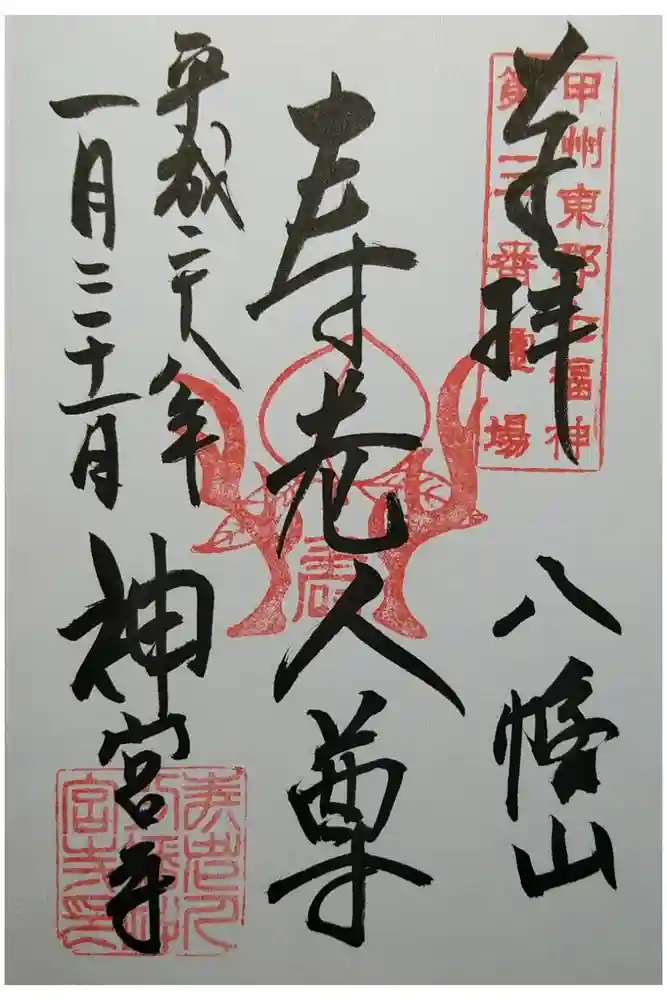 甲州東郡七福神
第三番霊場
奉拝
八幡山
寿老人尊
平成二十八年
一月三十一日
神宮寺